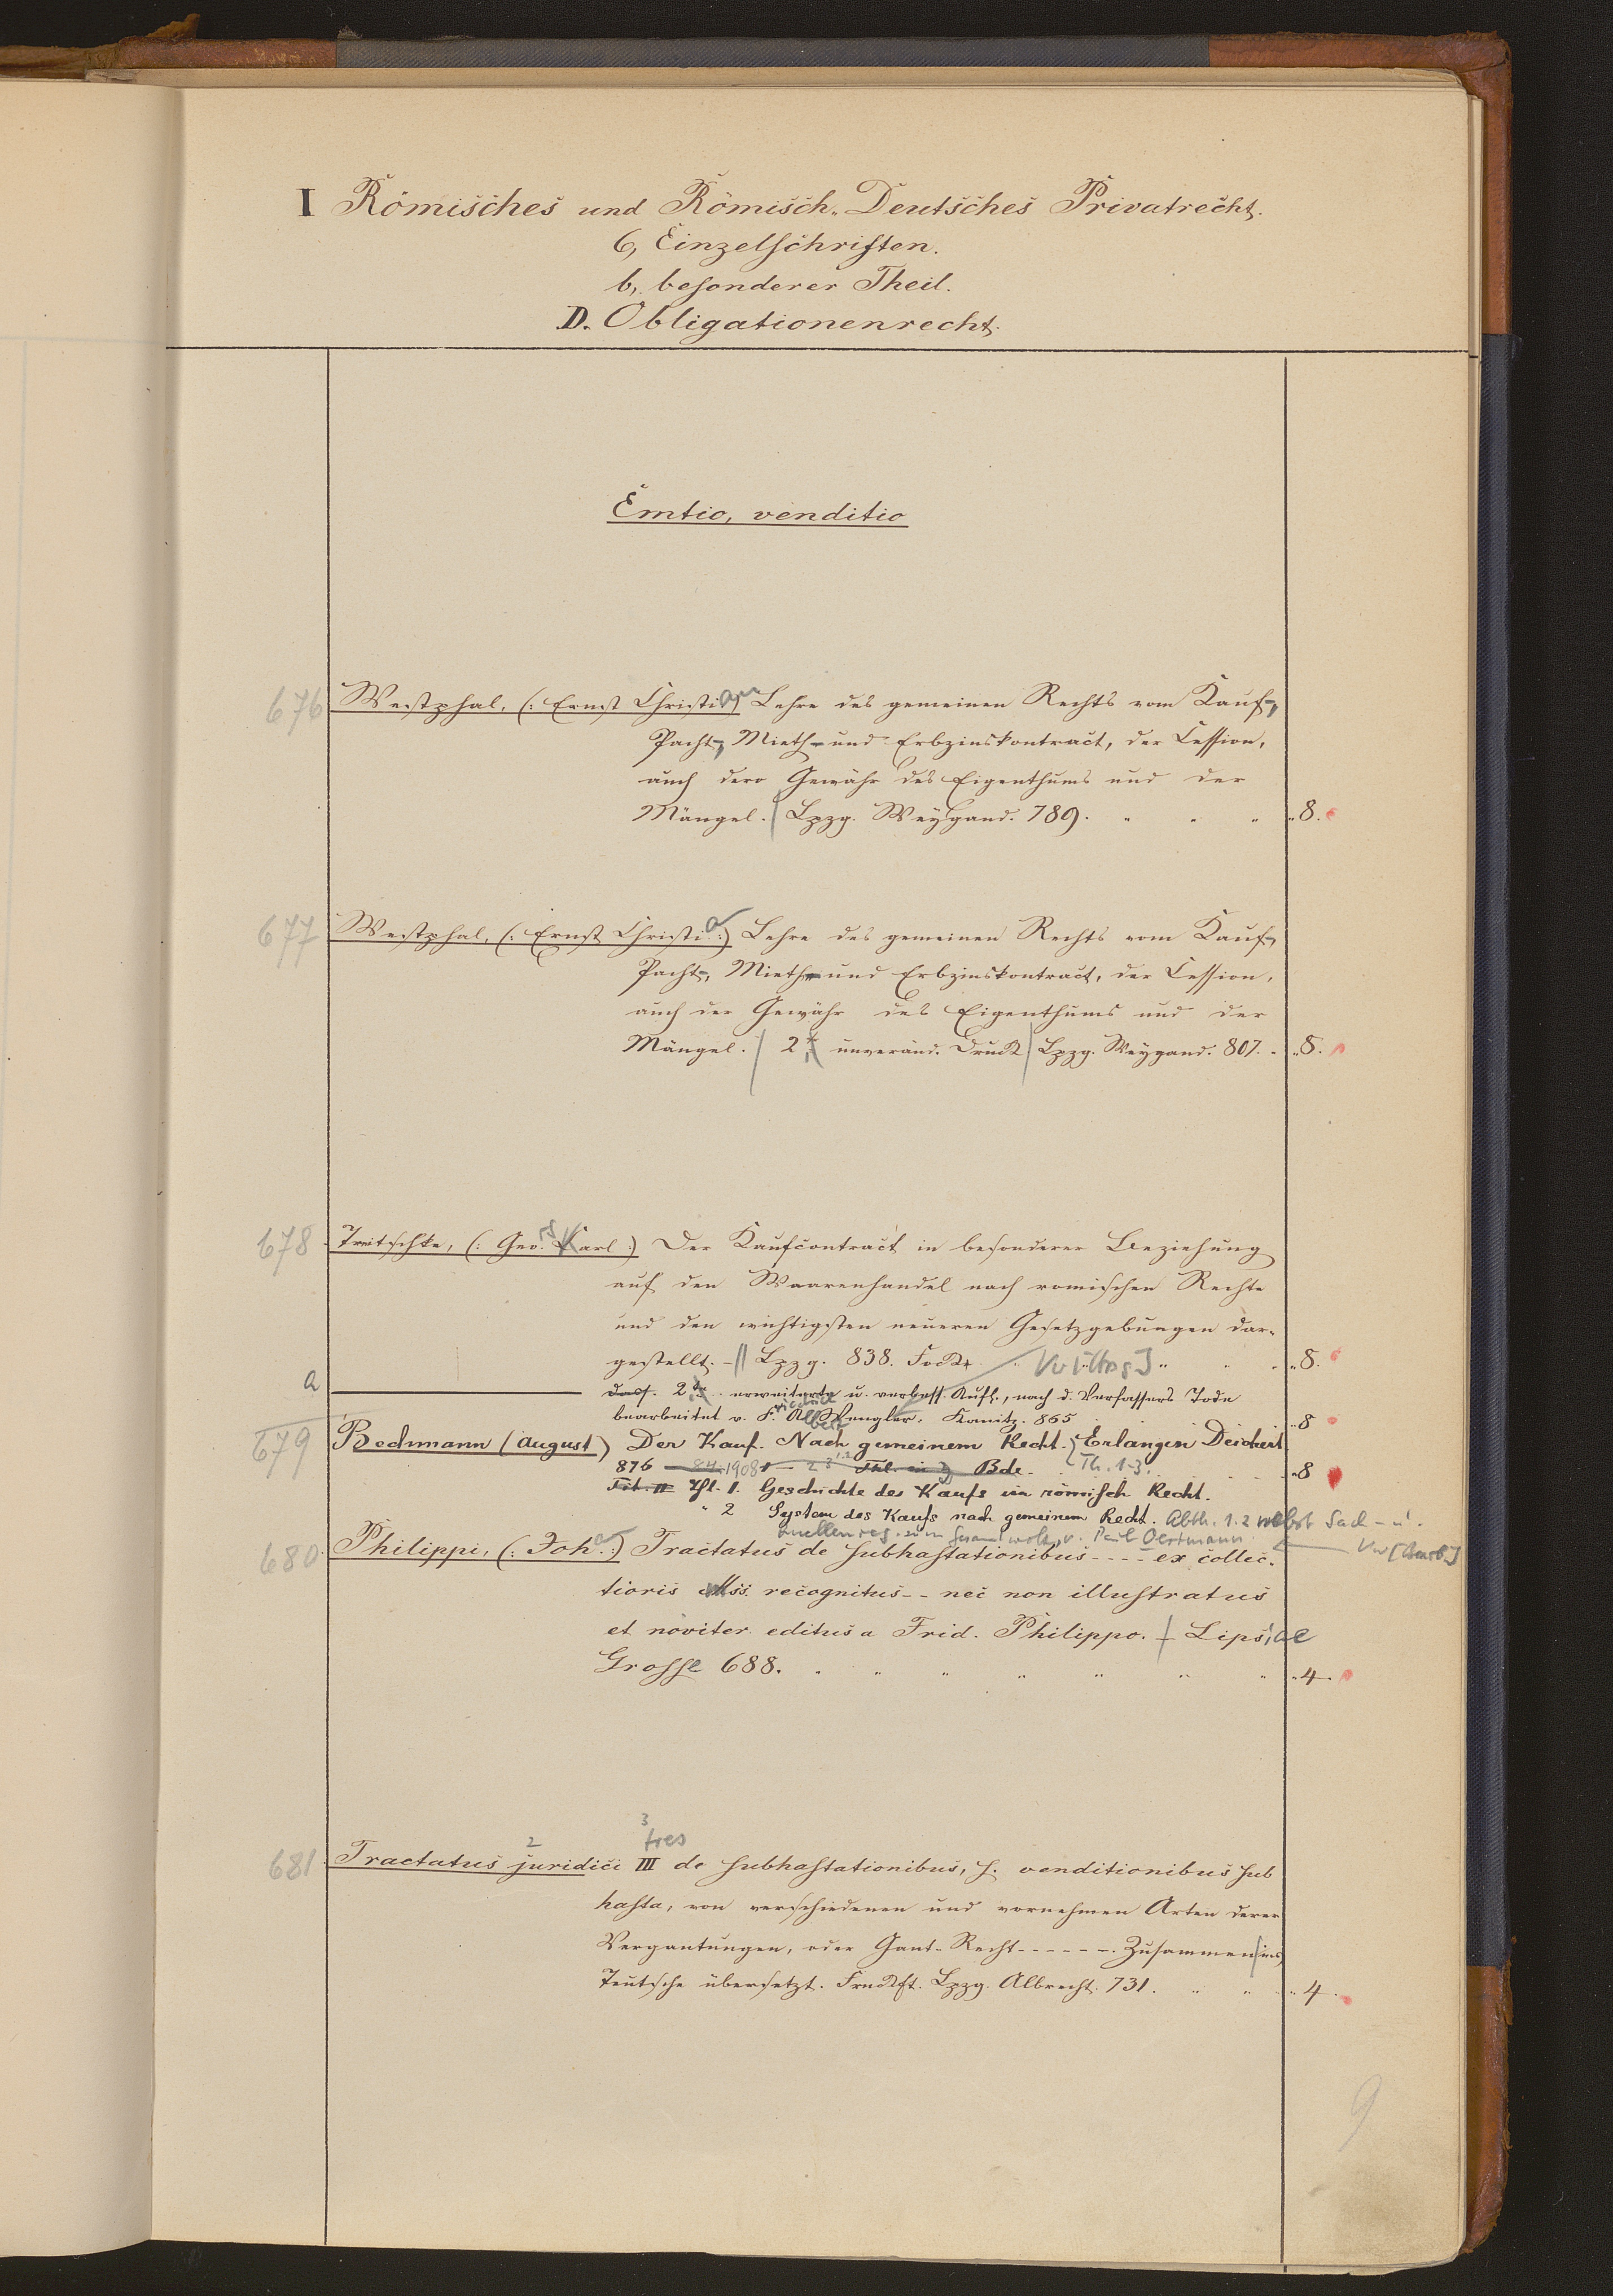 I Römisches und Römisch-Deutsches Privatrecht.
6, Einzelschriften.
b, besonderer Theil.
D. Obligationenrecht.
Emtio, venditio
676 Westphal, (: Ernst Christian Lehre des gemeinen Rechts vom Kauf-,
Pacht-, Mieth- und Erbzinskontract, der Cession,
auch dero Gewähr des Eigenthums und der
Mängel. Lpzg. Weygand. 789. „ „ „ „ 8.
677 Westphal, (: Ernst Christia :) Lehre des gemeinen Rechts vom Kauf-,
Pacht-, Mieth- und Erbzinskontract, der Cession,
auch der Gewähr des Eigenthums und der
Mängel. 2. unveränd. Druck Lpzg. Weygand. 807. „ 8.
678 Treitschke, (: Geo. Karl :) Der Kaufcontract in besonderer Beziehung
auf den Waarenhandel nach romischen Rechte
und den wichtigsten neueren Gesetzgebungen dar-
gestellt. Lpzg. 838. „ „ „ 8.
a dass. 2 erweiterte u. verbess. Aufl., nach d. Verfassers Tode
bearbeitet v. Friedrich Albert Wengler. Kanitz. 865 „ 8
679 Bechmann (August) Der Kauf. Nach gemeinem Recht. Erlangen Deichert
876 84 1908 Thl. in Bde. Th. 1-3. „ 8
Tit. Thl. 1. Geschichte des Kaufs im römisch Recht.
„ 2 System des Kaufs nach gemeinem Recht. Abth. 1. 2 nebst Sach- u.
Quellenreg. zum Gesamtwerk v. Paul Oertmann
680 Philippi, (: Joh. :) Tractatus de subhastationibus ---- ex collec-
tioris Mss. recognitus -- nec non illustratus
et noviter editus a Frid. Philippo. Lipsiae
Grosse 688. „ „ „ „ „ „ „ 4.
2 3 tres
681 Tractatus juridici III de subhastationibus, s. venditionibus sub
hasta, von verschiedenen und vornehmen Arten derer
Vergantungen, oder Gant-Recht ------ Zusammen ins
Teutsche übersetzt. Frnckft. Lpzg. Albrecht. 731. „ „ „ 4.
9